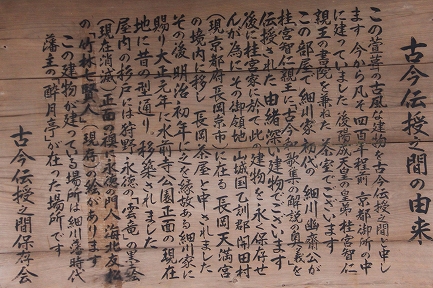 古今伝授之間の由来
この萱葺の古風な建物を古今伝授之間と申し
ます 今から凡そ四百年程前 京都御所の中
に建っていました 後陽成天皇の皇弟 桂宮智仁
親王の書院を兼ねた 茶室でございます
この部屋で細川家初代の 細川幽斎公が
桂宮智仁親王に 古今和歌集の解説の奥義を
伝授された 由緒深い建物でございます
後に桂宮家に於て 此の建物を永く保存せ
んが為に その御領地 山城国乙訓郡開田村
(現京都府長岡京市)に在る 長岡天満宮
の境内に移し 長岡茶屋と申されました
その後 明治初年に之を縁故ある細川家に
賜り 大正元年に水前寺公園正面の現在
地に 昔の型通り 移築されました
屋内の杉戸には狩野永徳の「雲竜」の墨絵
(現在消滅)正面の襖に永徳の門人 海北友松
の「竹林七賢人」(現存)の絵があります
この建物が建ってる場所は 細川藩時代
藩主の「酔月亭」が在った場所です
古今伝授之間保存会